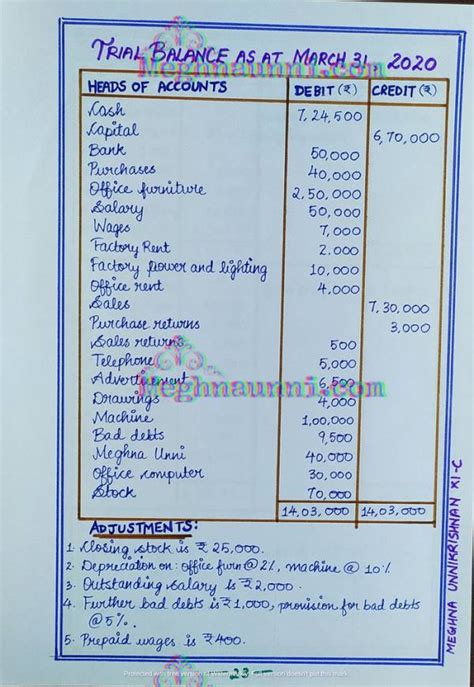 TRIAL BALANCE AS AT MARCH 31 2020
Meghnaunni.com
HEADS OF ACCOUNTS DEBIT (₹) CREDIT (₹)
Cash 7,24,500
Capital 6,70,000
Bank 50,000
Purchases 40,000
Office furniture 2,50,000
Salary 50,000
Wages 7,000
Factory Rent 2.000
Factory power and lighting 10,000
Office rent 4,000
Sales 7,30,000
Purchase returns 3,000
Sales returns 500
Telephone 5,000
Advertisement 6,500
Meghnaunni.com
Drawings 4,000
Machine 1,00,000
Bad debts 9,500
Meghna Unni 40,000
Office computer 30,000
Stock 70,000
14,03,000 14,03,000
ADJUSTMENTS:
1. Closing stock is ₹ 25,000.
2. Depreciation on: office furn @ 2%, machine @ 10%
3. Outstanding salary is ₹2,000.
4. Further bad debts is ₹1,000, provision for bad debts
@ 5%.
5. Prepaid wages is ₹400.
MEGHNA UNNIKRISHNAN XI-C
Protected with free version of Watermark. Full version doesn't put this mark.
-23-